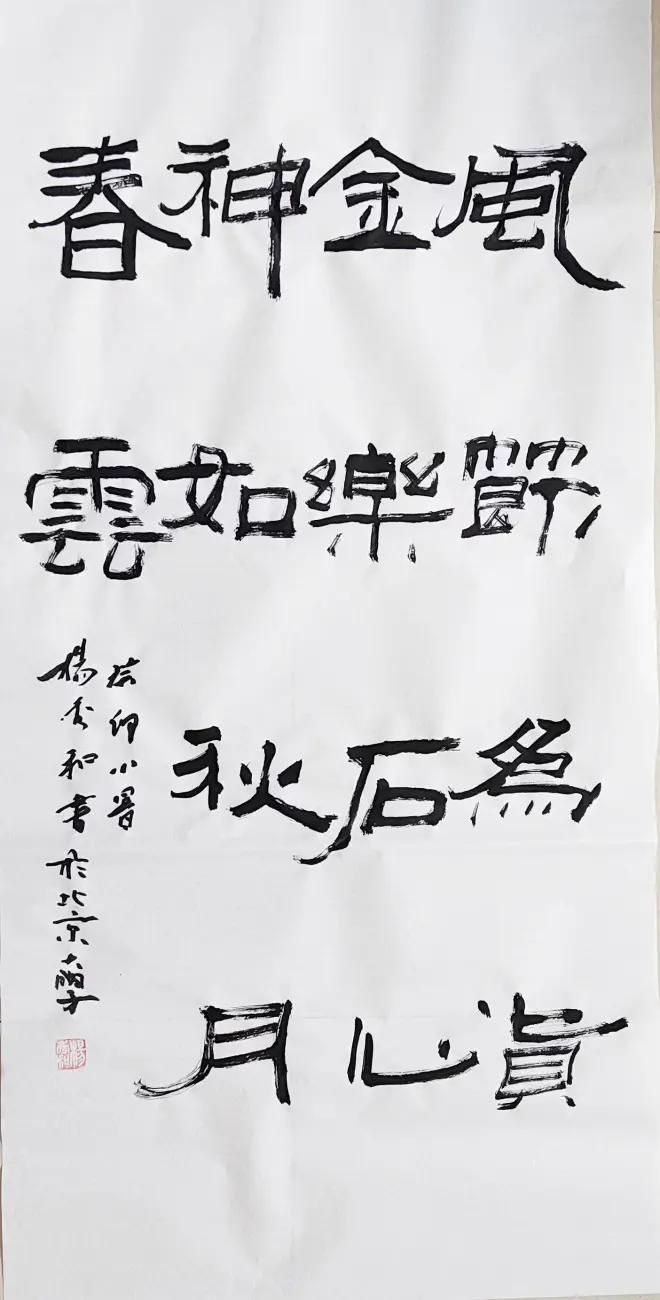 風節為
金樂石心
神如秋月
春雲
癸卯小暑
楊秀和書於北京